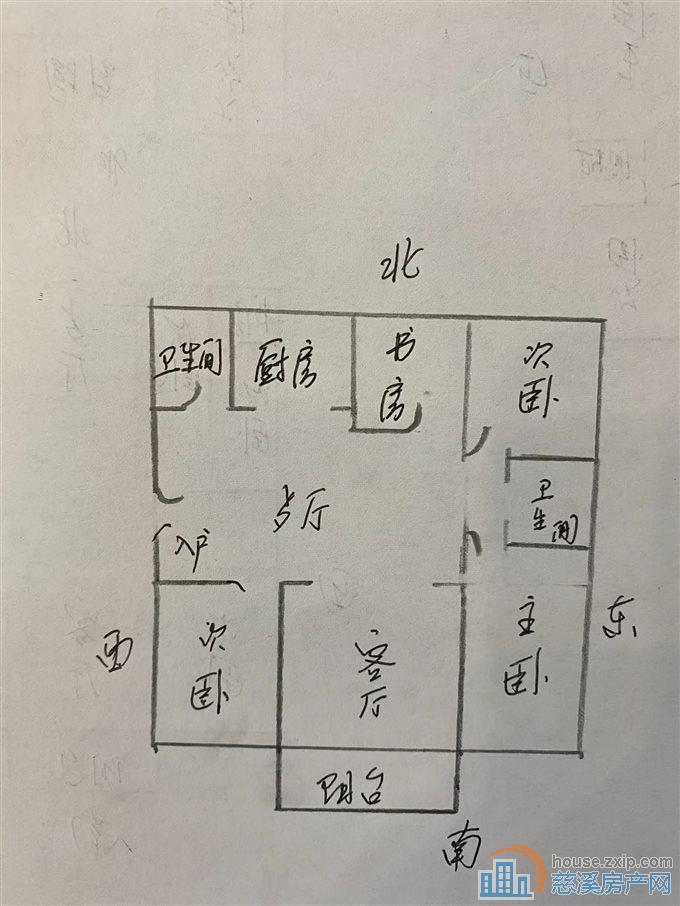 北
卫生间
厨房
书
房
次
卧
卫
生
间
歺厅
入户
次
卧
客
厅
主
卧
西
东
阳台
南
house.zxip.com
慈溪房产网